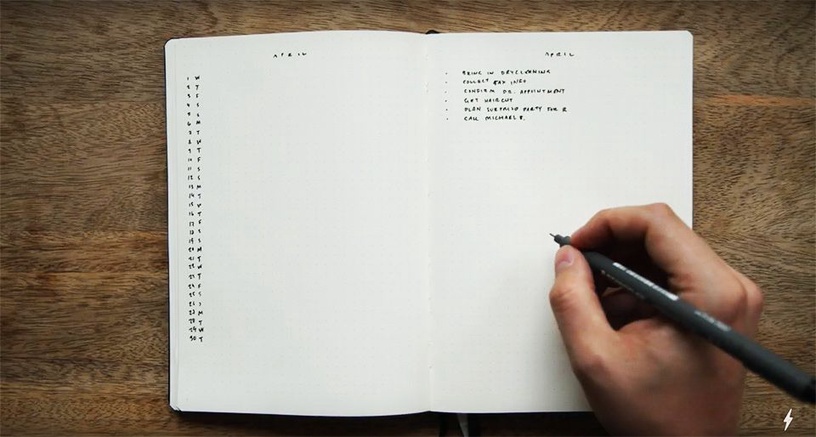 APRIL
1 W
2 T
3 F
4 S
5 S
6 M
7 T
8 W
9 T
10 F
11 S
12 S
13 M
14 T
15 W
16 T
17 F
18 S
19 S
20 M
21 T
22 W
23 T
24 F
25 S
26 S
27 M
28 T
29 W
30 T
APRIL
· BRING IN DRYCLEANING
· COLLECT TAX INFO
· CONFIRM DR. APPOINTMENT
· GET HAIRCUT
· PLAN SURPRISE PARTY FOR R.
· CALL MICHAEL B.